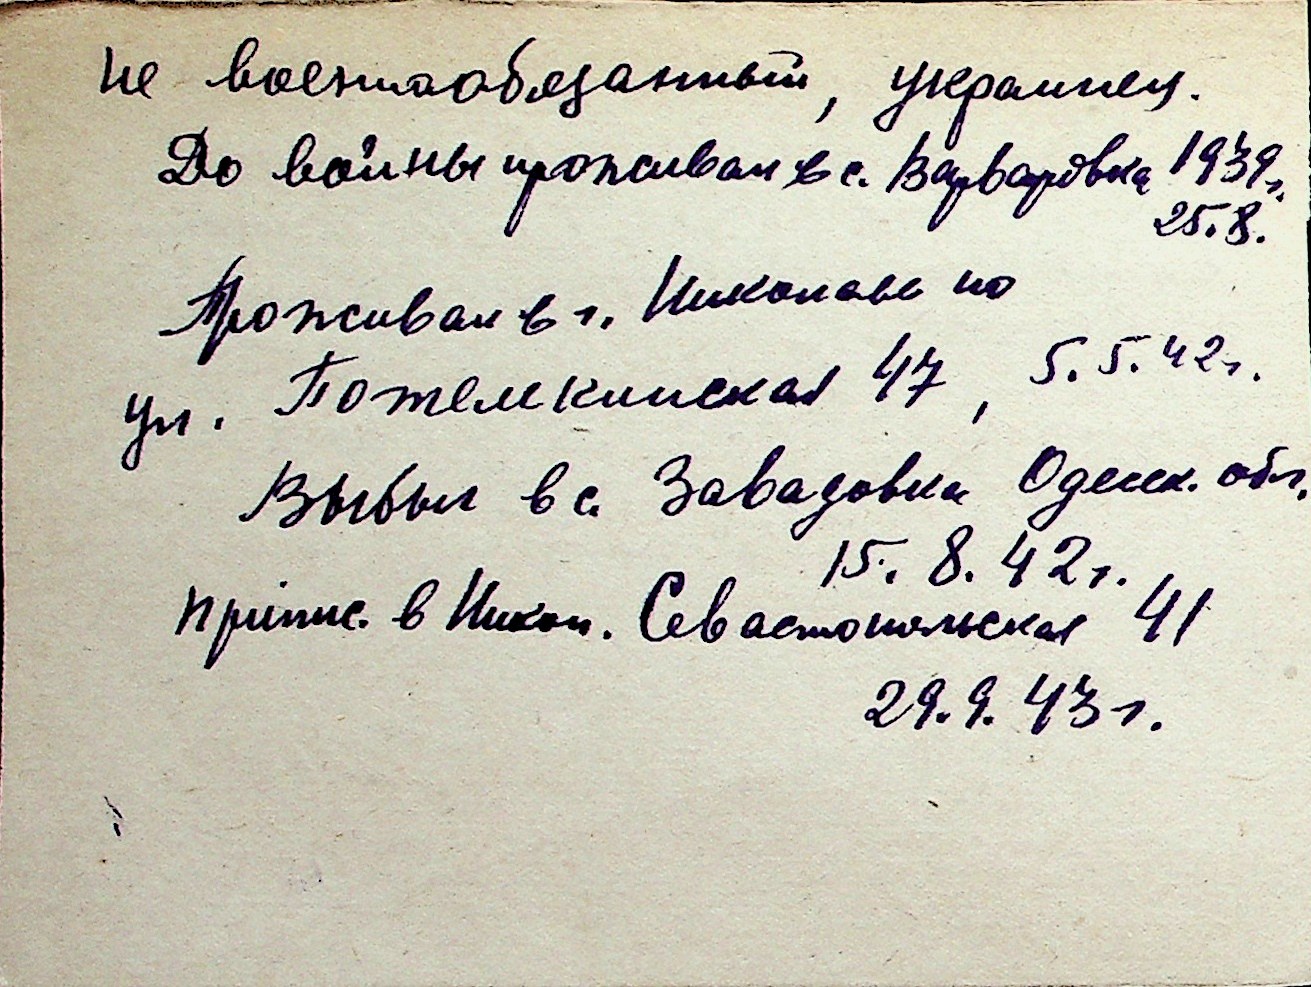 не военнообязанный, украинец.
До войны проживал в с. Варваровка 1939г.
25.8.
Проживал в г. Николаеве по
ул. Потемкинская 47, 5.5.42г.
Выбыл в с. Завадовка Одесск. обл.
15.8.42г.
припис. в Никол. Севастопольская 41
29.9.43г.